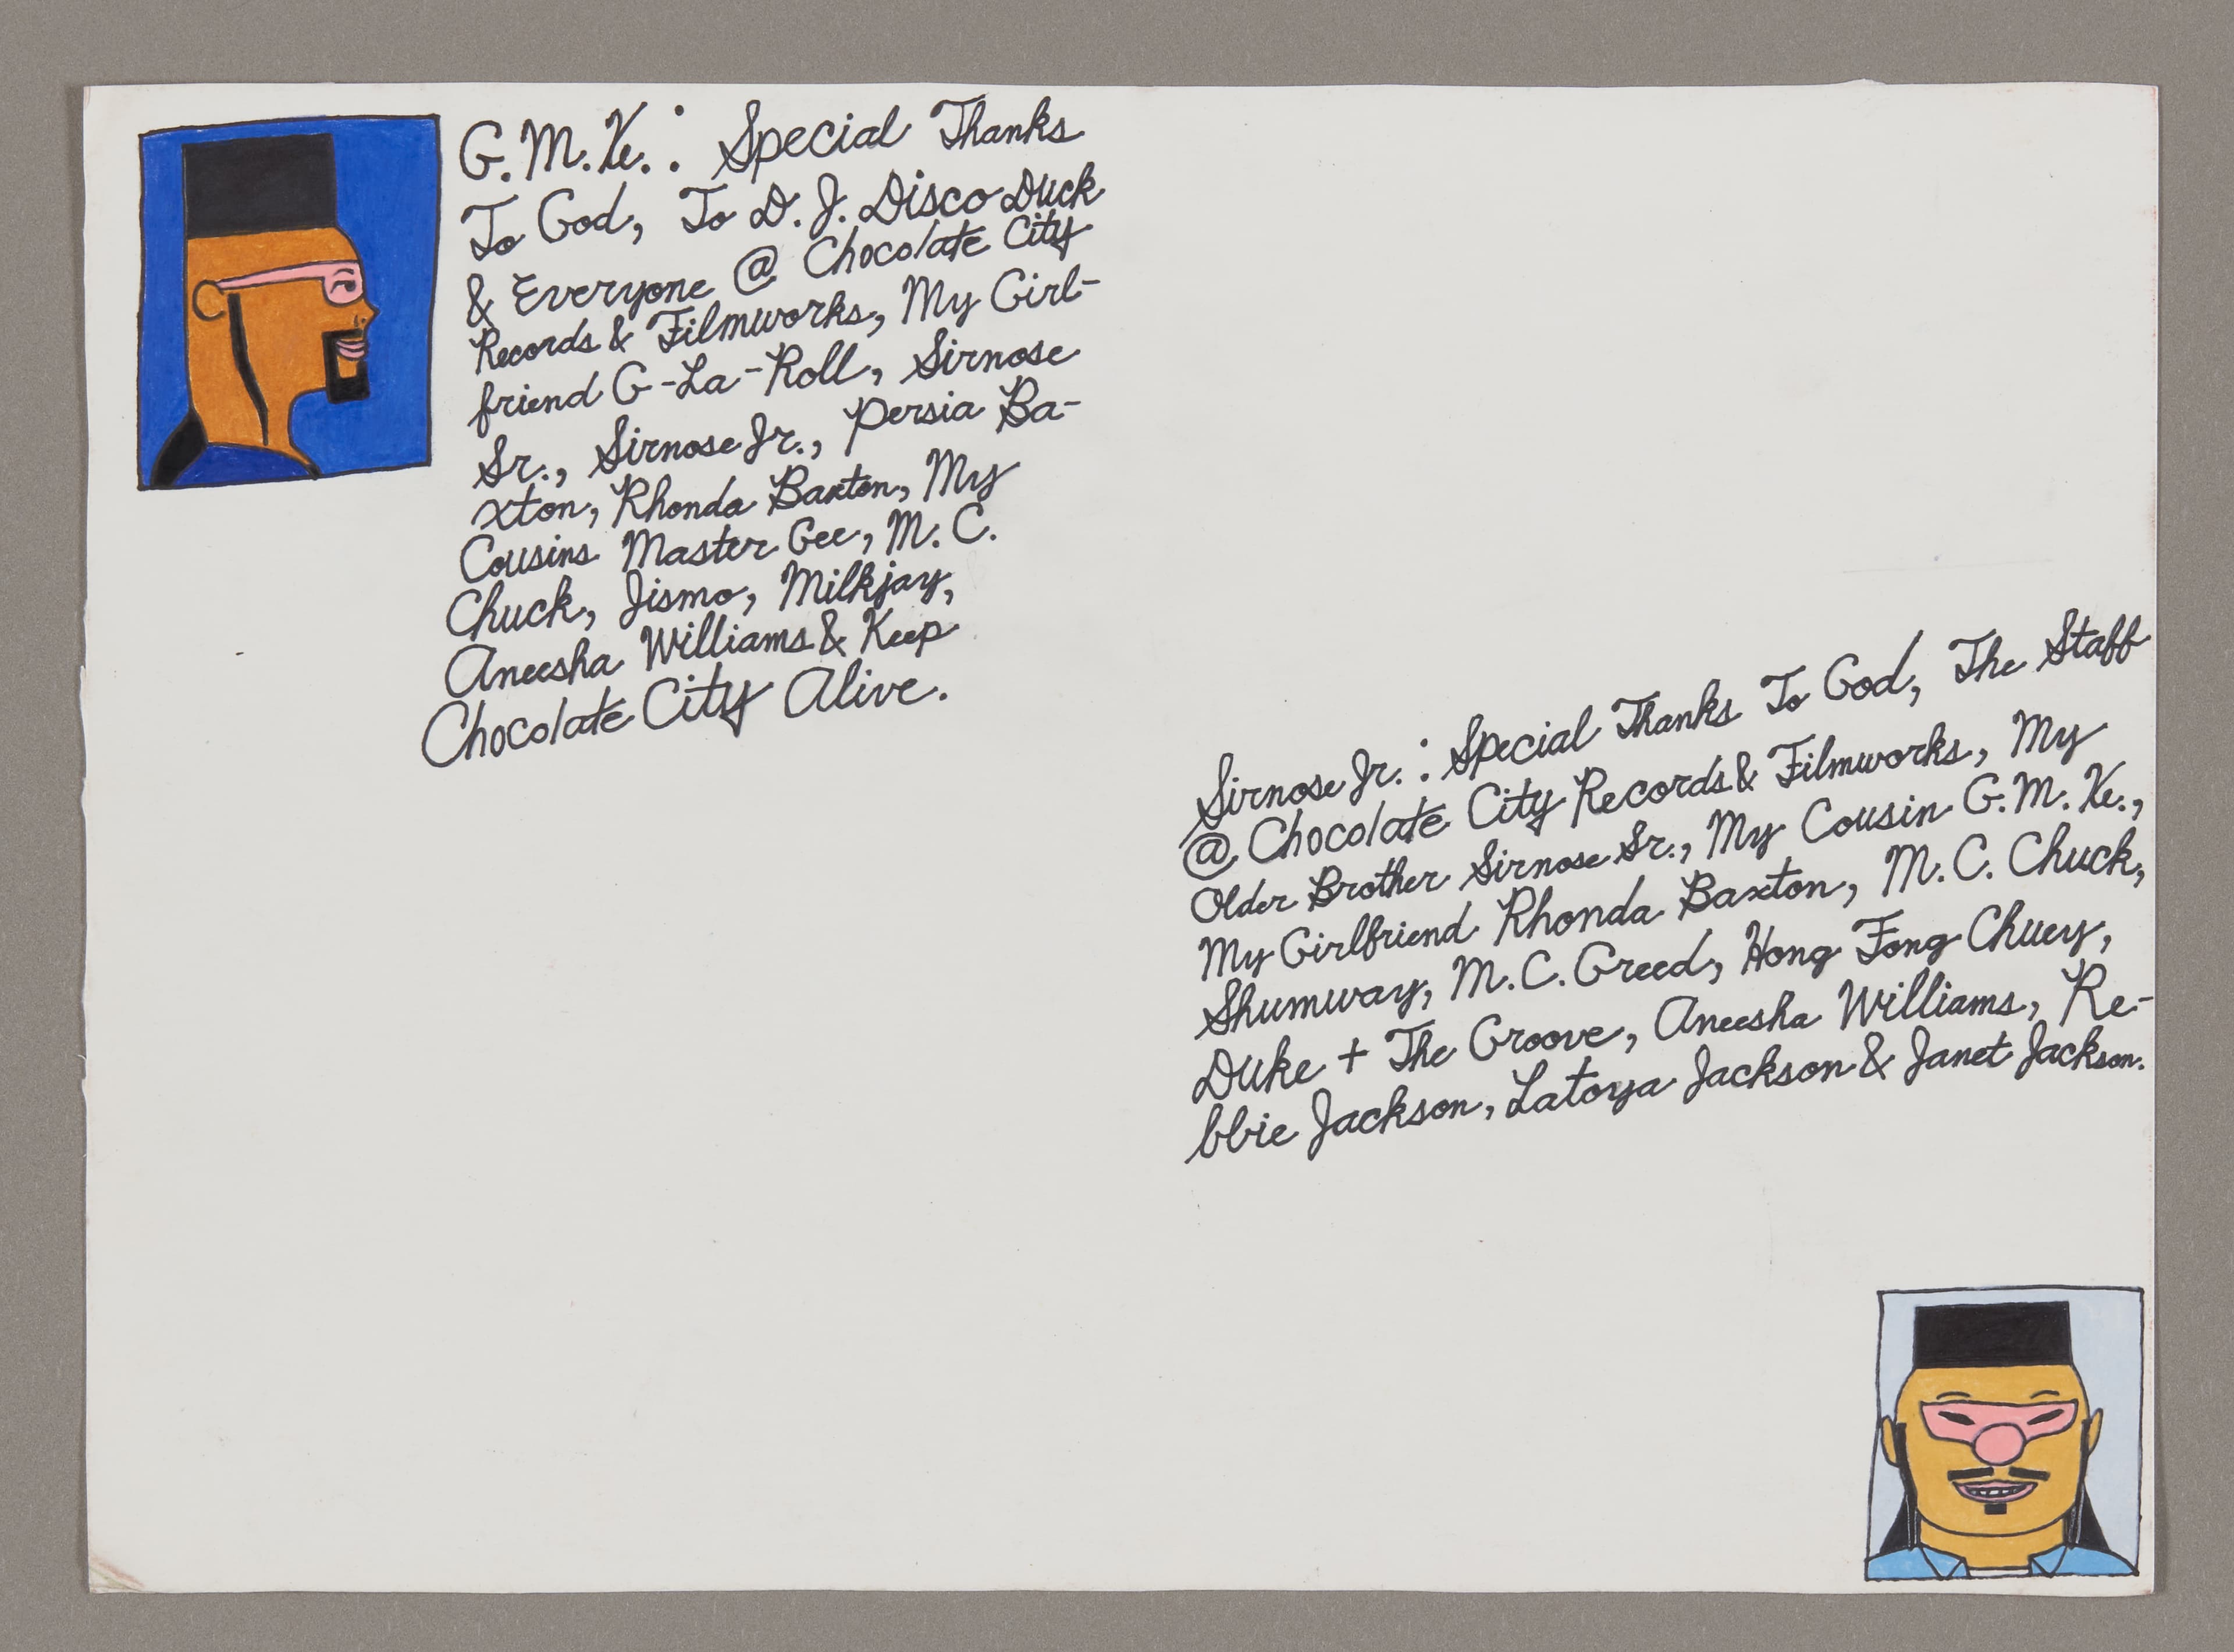 G.M.Ke.: Special Thanks
To God, To D.J. Disco Duck
& Everyone @ Chocolate City
Records & Filmworks, My Girl-
friend G-La-Roll, Sirnose
Sr., Sirnose Jr., Persia Ba-
xton, Rhonda Baxton, My
Cousins Master Gee, M.C.
Chuck, Jismo, Milkjay,
Aneesha Williams & Keep
Chocolate City Alive.
Sirnose Jr.: Special Thanks To God, The Staff
@ Chocolate City Records & Filmworks, My
Older Brother Sirnose Sr., My Cousin G.M.Ke.,
My Girlfriend Rhonda Baxton, M.C. Chuck,
Shumway, M.C. Greed, Hong Fong Chuey,
Duke + The Groove, Aneesha Williams, Re-
bbie Jackson, Latoya Jackson & Janet Jackson.